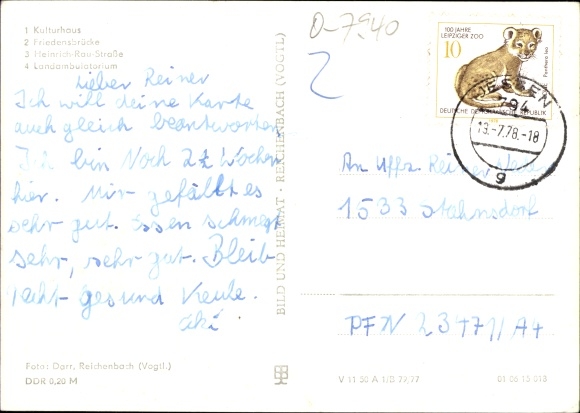 1 Kulturhaus
2 Friedensbrücke
3 Heinrich-Rau-Straße
4 Landambulatorium
Lieber Reiner
Ich will deine Karte
auch gleich beantworten
Ich bin Noch 2½ Wochen
hier. Mir gefällt es
sehr gut. Essen schmegt
sehr, sehr gut. Bleib
recht gesund Keule.
Foto: Darr, Reichenbach (Vogtl.)
DDR 0,20 M
BILD UND HEIMAT · REICHENBACH (VOGTL)
D-7940
100 JAHRE
LEIPZIGER ZOO
10
Panthera leo
DEUTSCHE DEMOKRATISCHE REPUBLIK
JESSEN
794
13.-7.78.-18
g
An Uffz. Reiner
1533 Stahnsdorf
PFN 23471/A4
V 11 30 A 1/B 77,77
01 06 15 013